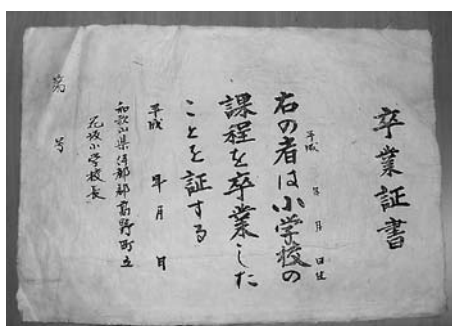 卒業証書
平成 年 月 日生
右の者は小学校の
課程を卒業した
ことを証する
平成 年 月 日
和歌山県伊都郡高野町立
花坂小学校長
第 号